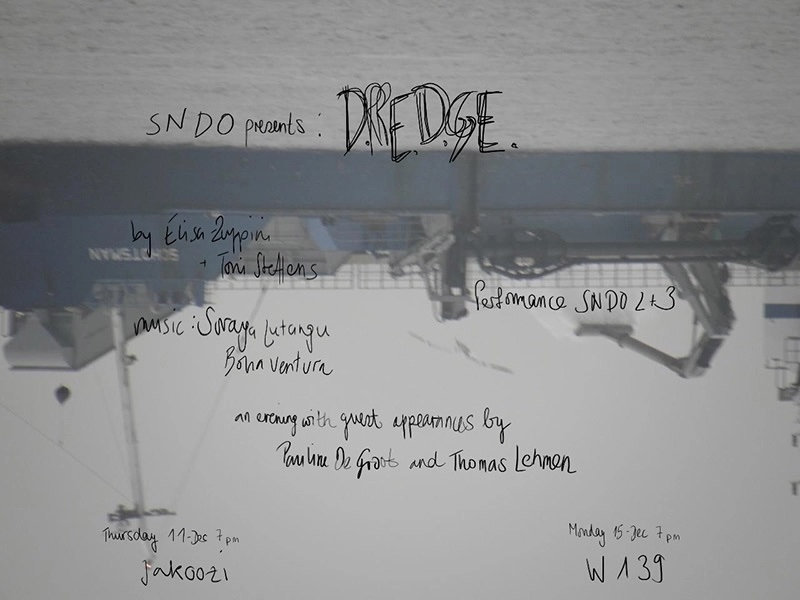 SNDO presents: D.R.E.D.G.E.
by Élisa Zuppini
+ Toni Steffens
SCHOTSMAN
Performance SNDO 2+3
music: Soraya Lutangu
Bonaventura
an evening with guest appearances by
Pauline De Groot and Thomas Lehmen
Thursday 11-Dec 7pm
Monday 15-Dec 7pm
jakoozi
W139